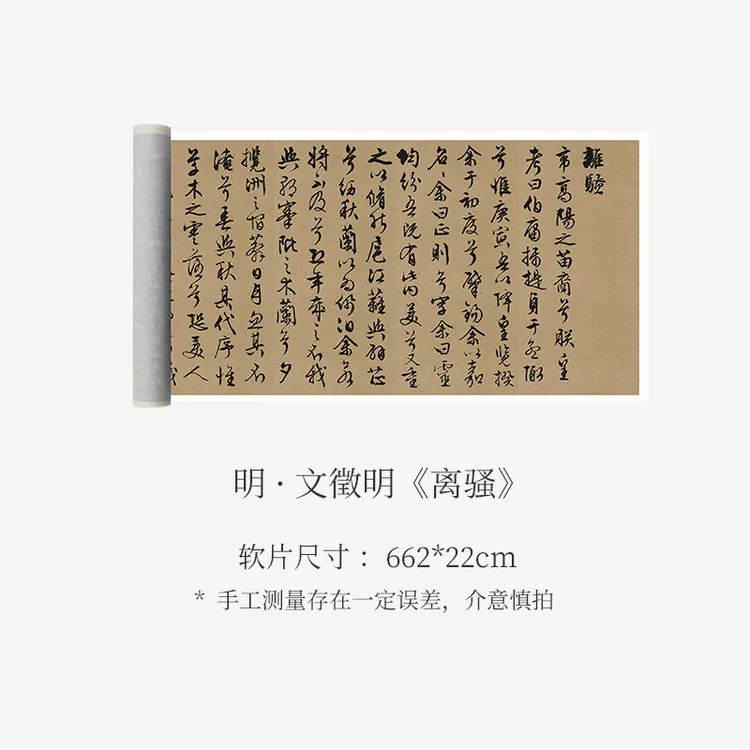 離騷
帝高陽之苗裔兮朕皇
考曰伯庸攝提貞于孟陬
兮惟庚寅吾以降皇覽揆
余于初度兮肇錫余以嘉
名〻余曰正則兮字余曰靈
均紛吾既有此內美兮又重
之以脩能扈江蘺與辟芷
兮紉秋蘭以為佩汩余若
將不及兮恐年歲之不我
與朝搴阰之木蘭兮夕
攬洲之宿莽日月忽其不
淹兮春與秋其代序惟
草木之零落兮恐美人
明·文徵明《离骚》
软片尺寸：662*22cm
* 手工测量存在一定误差，介意慎拍